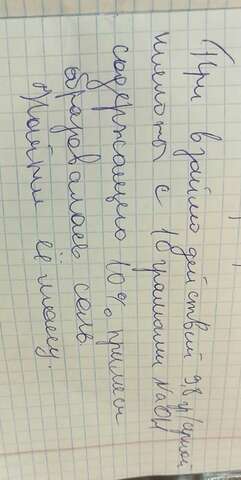 При взаимодействии 9,8 гр серной
кислоты с 18 граммами NaOH
содержащего 10% примеси
образовалась соль.
Найти её массу.